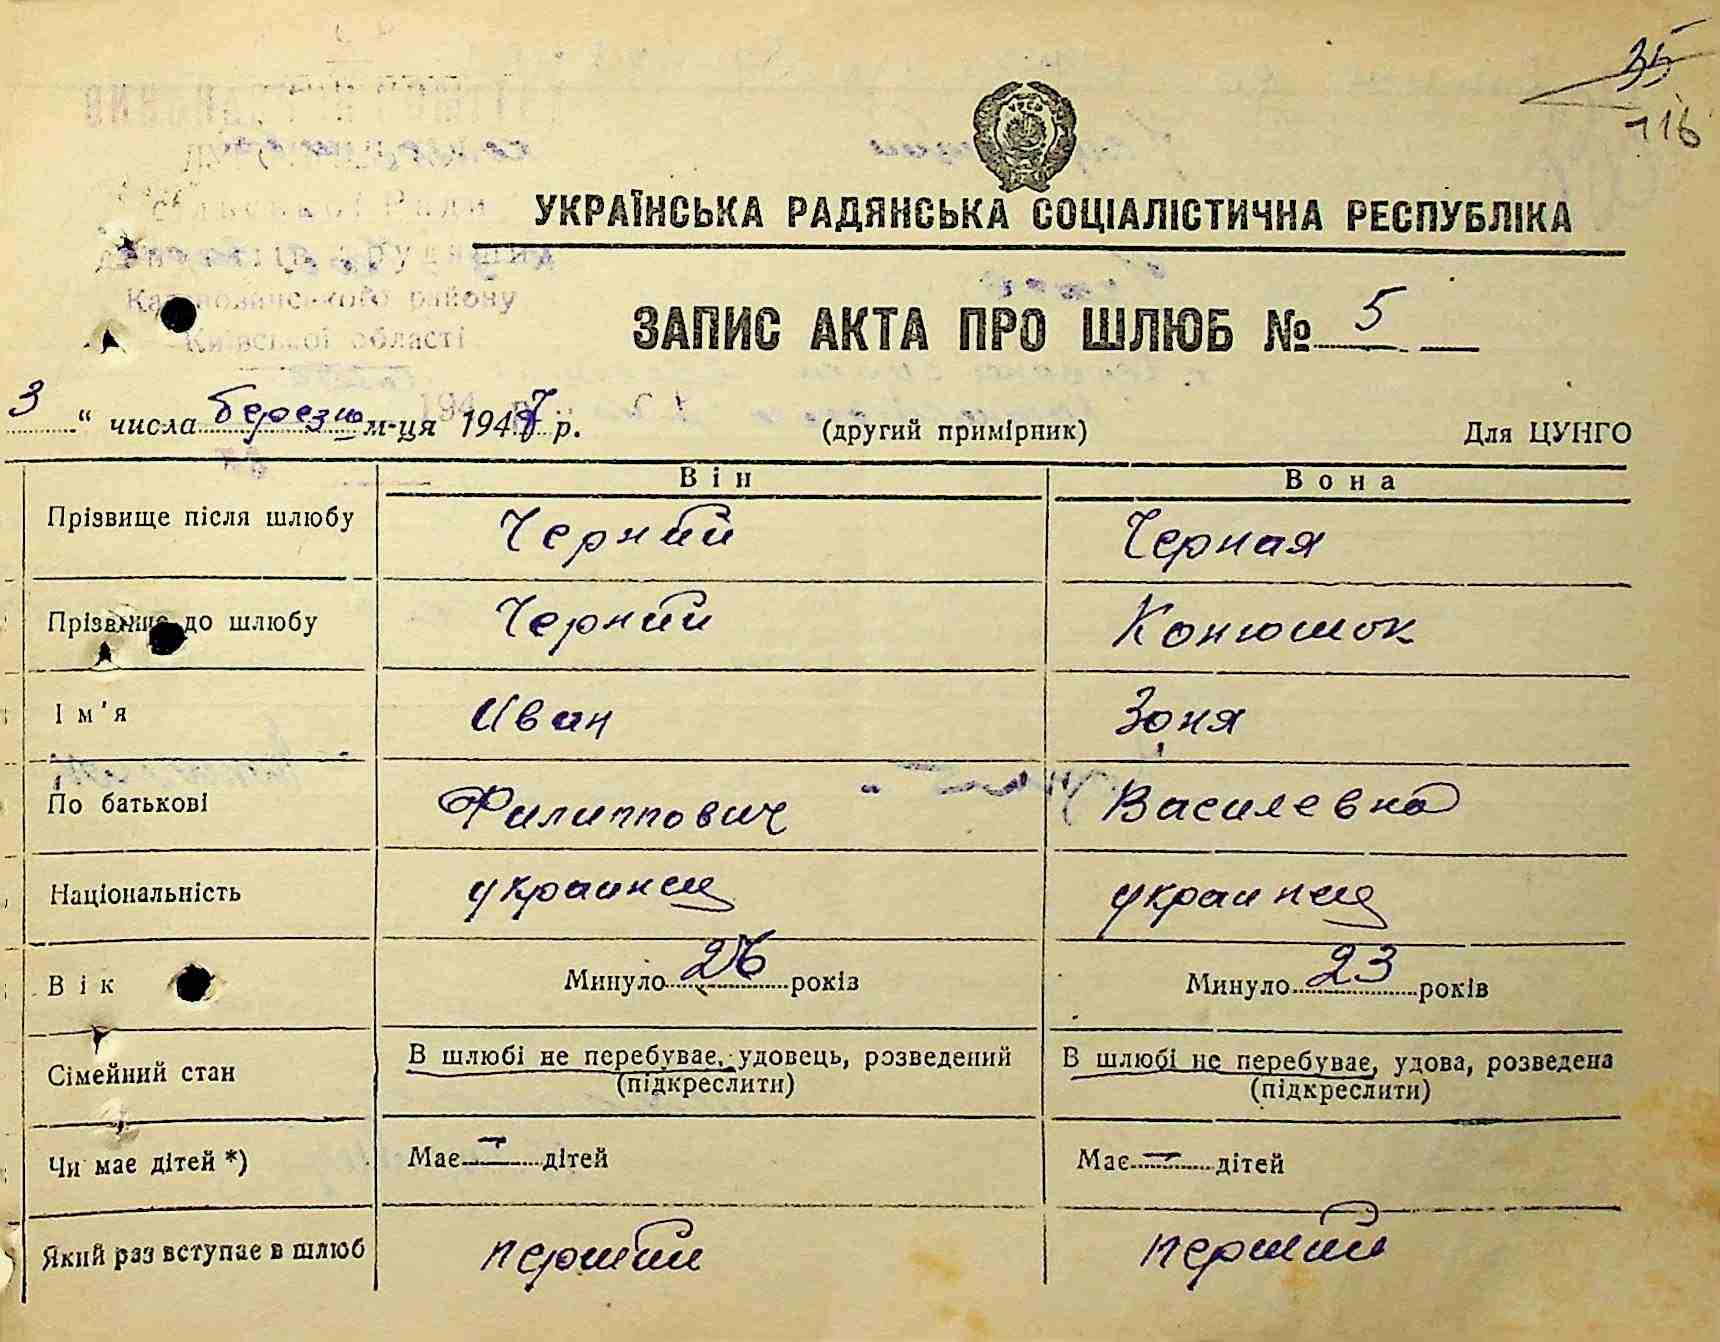 35
116
УКРАЇНСЬКА РАДЯНСЬКА СОЦІАЛІСТИЧНА РЕСПУБЛІКА
Калиновського району
Київської області
ЗАПИС АКТА ПРО ШЛЮБ № 5
3 “ числа березня м-ця 1947 р. (другий примірник) Для ЦУНГО
Він Вона
Прізвище після шлюбу Черний Черная
Прізвище до шлюбу Черний Конюшок
Ім'я Иван Зоня
По батькові Филиппович Василевна
Національність украинец украинец
Вік Минуло 26 років Минуло 23 років
Сімейний стан В шлюбі не перебуває, удовець, розведений В шлюбі не перебуває, удова, розведена
(підкреслити) (підкреслити)
Чи має дітей *) Має — дітей Має — дітей
Який раз вступає в шлюб перший перший